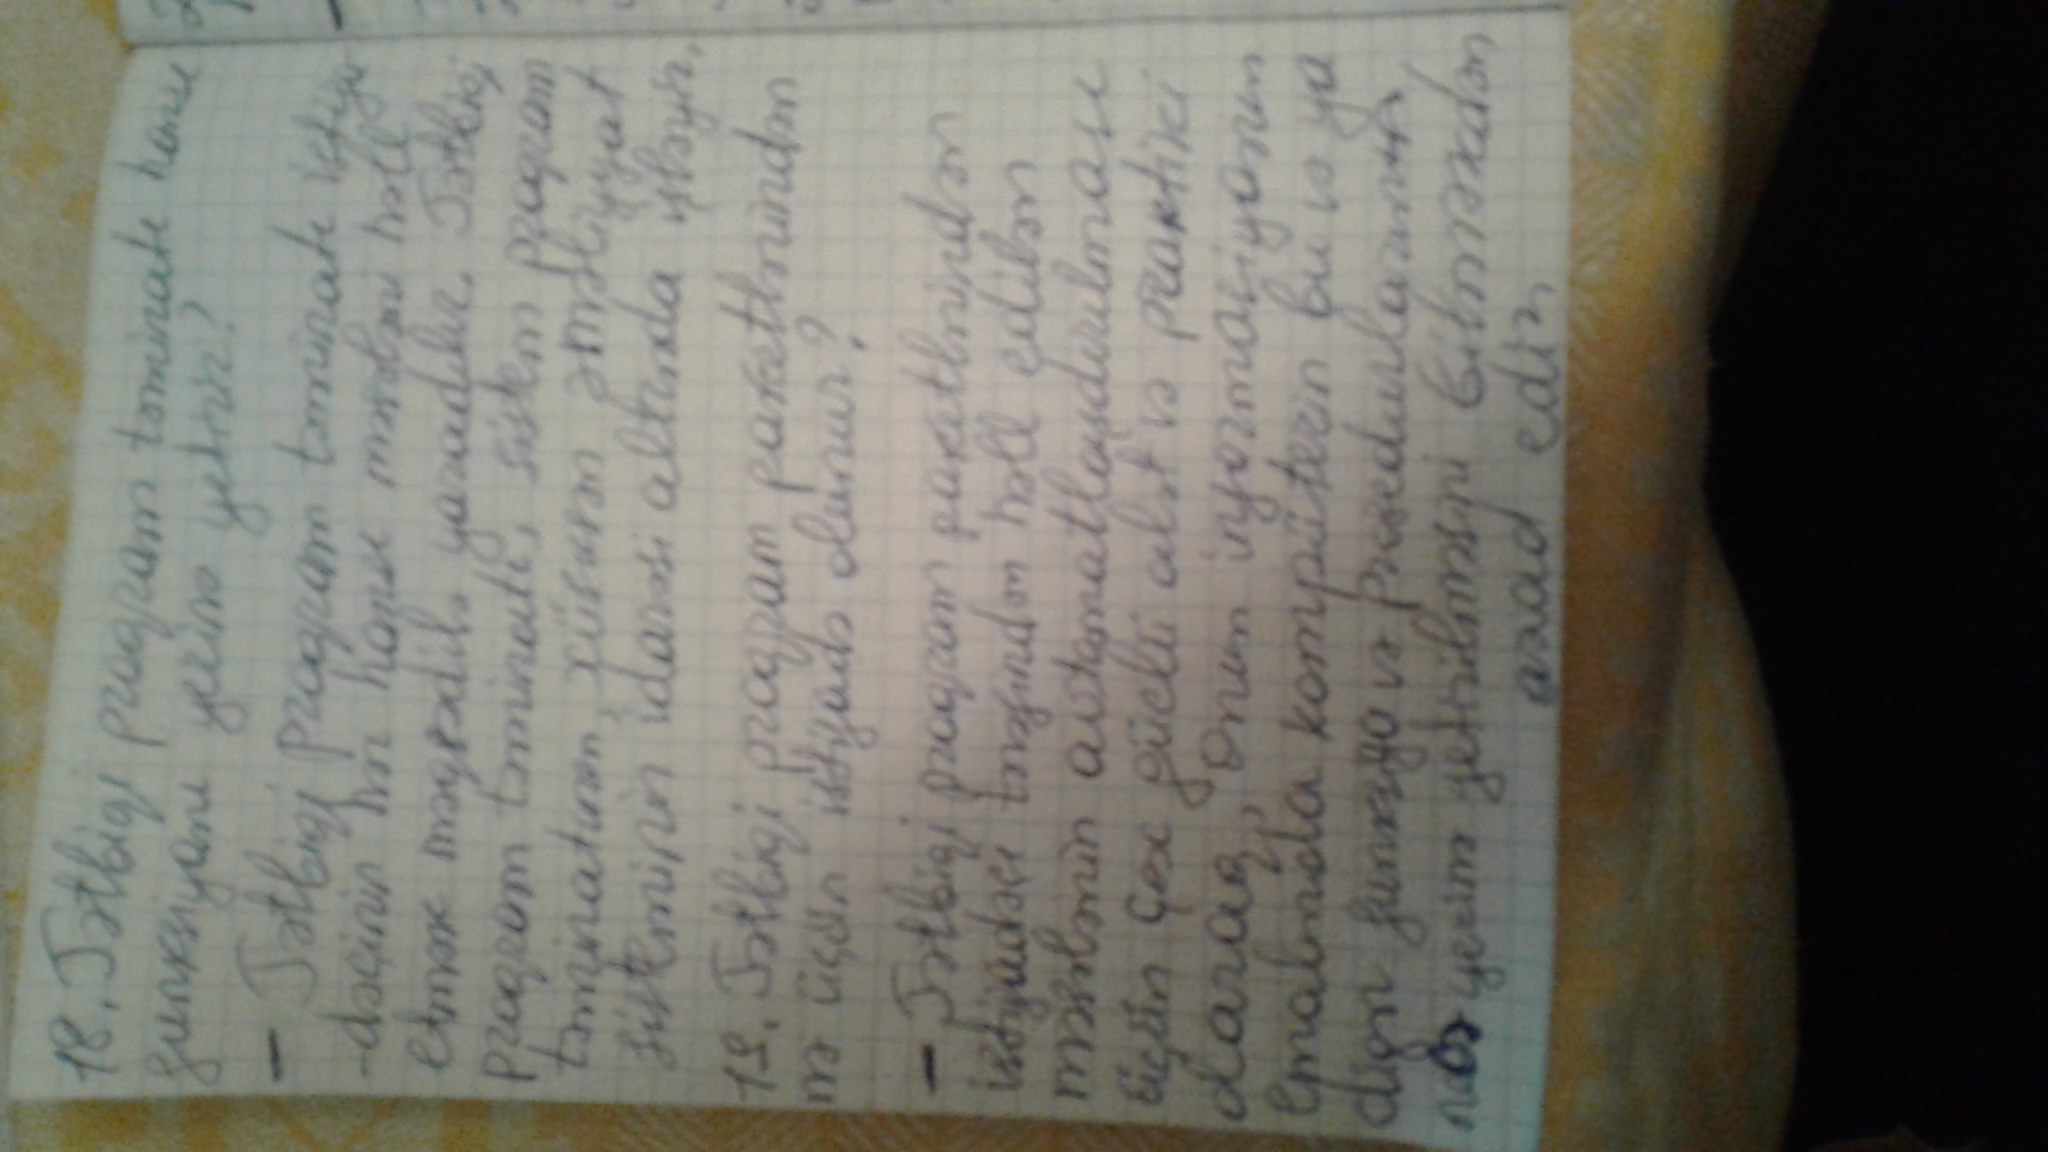 18. Tətbiqi proqram təminatı hansı
funksiyanı yerinə yetirir?
- Tətbiqi proqram təminatı istifa
-dəçinin hər hansı məsələni həll
etmək məqsədilə yaradılır. Tətbiqi
proqram təminatı, sistem proqram
təminatının, xüsusən əməliyyat
sisteminin idarəsi altında işləyir.
19. Tətbiqi proqram paketlərindən
nə üçün istifadə olunur?
- Tətbiqi proqram paketlərindən
istifadəçi tərəfindən həll edilən
məsələnin avtomatlaşdırılması
üçün çox güclü alət və praktiki
olaraq, onun informasiyanın
emalında kompüterin bu və ya
digər funksiya və prosedurlarının
necə yerinə yetirilməsini bilməkdən
azad edir